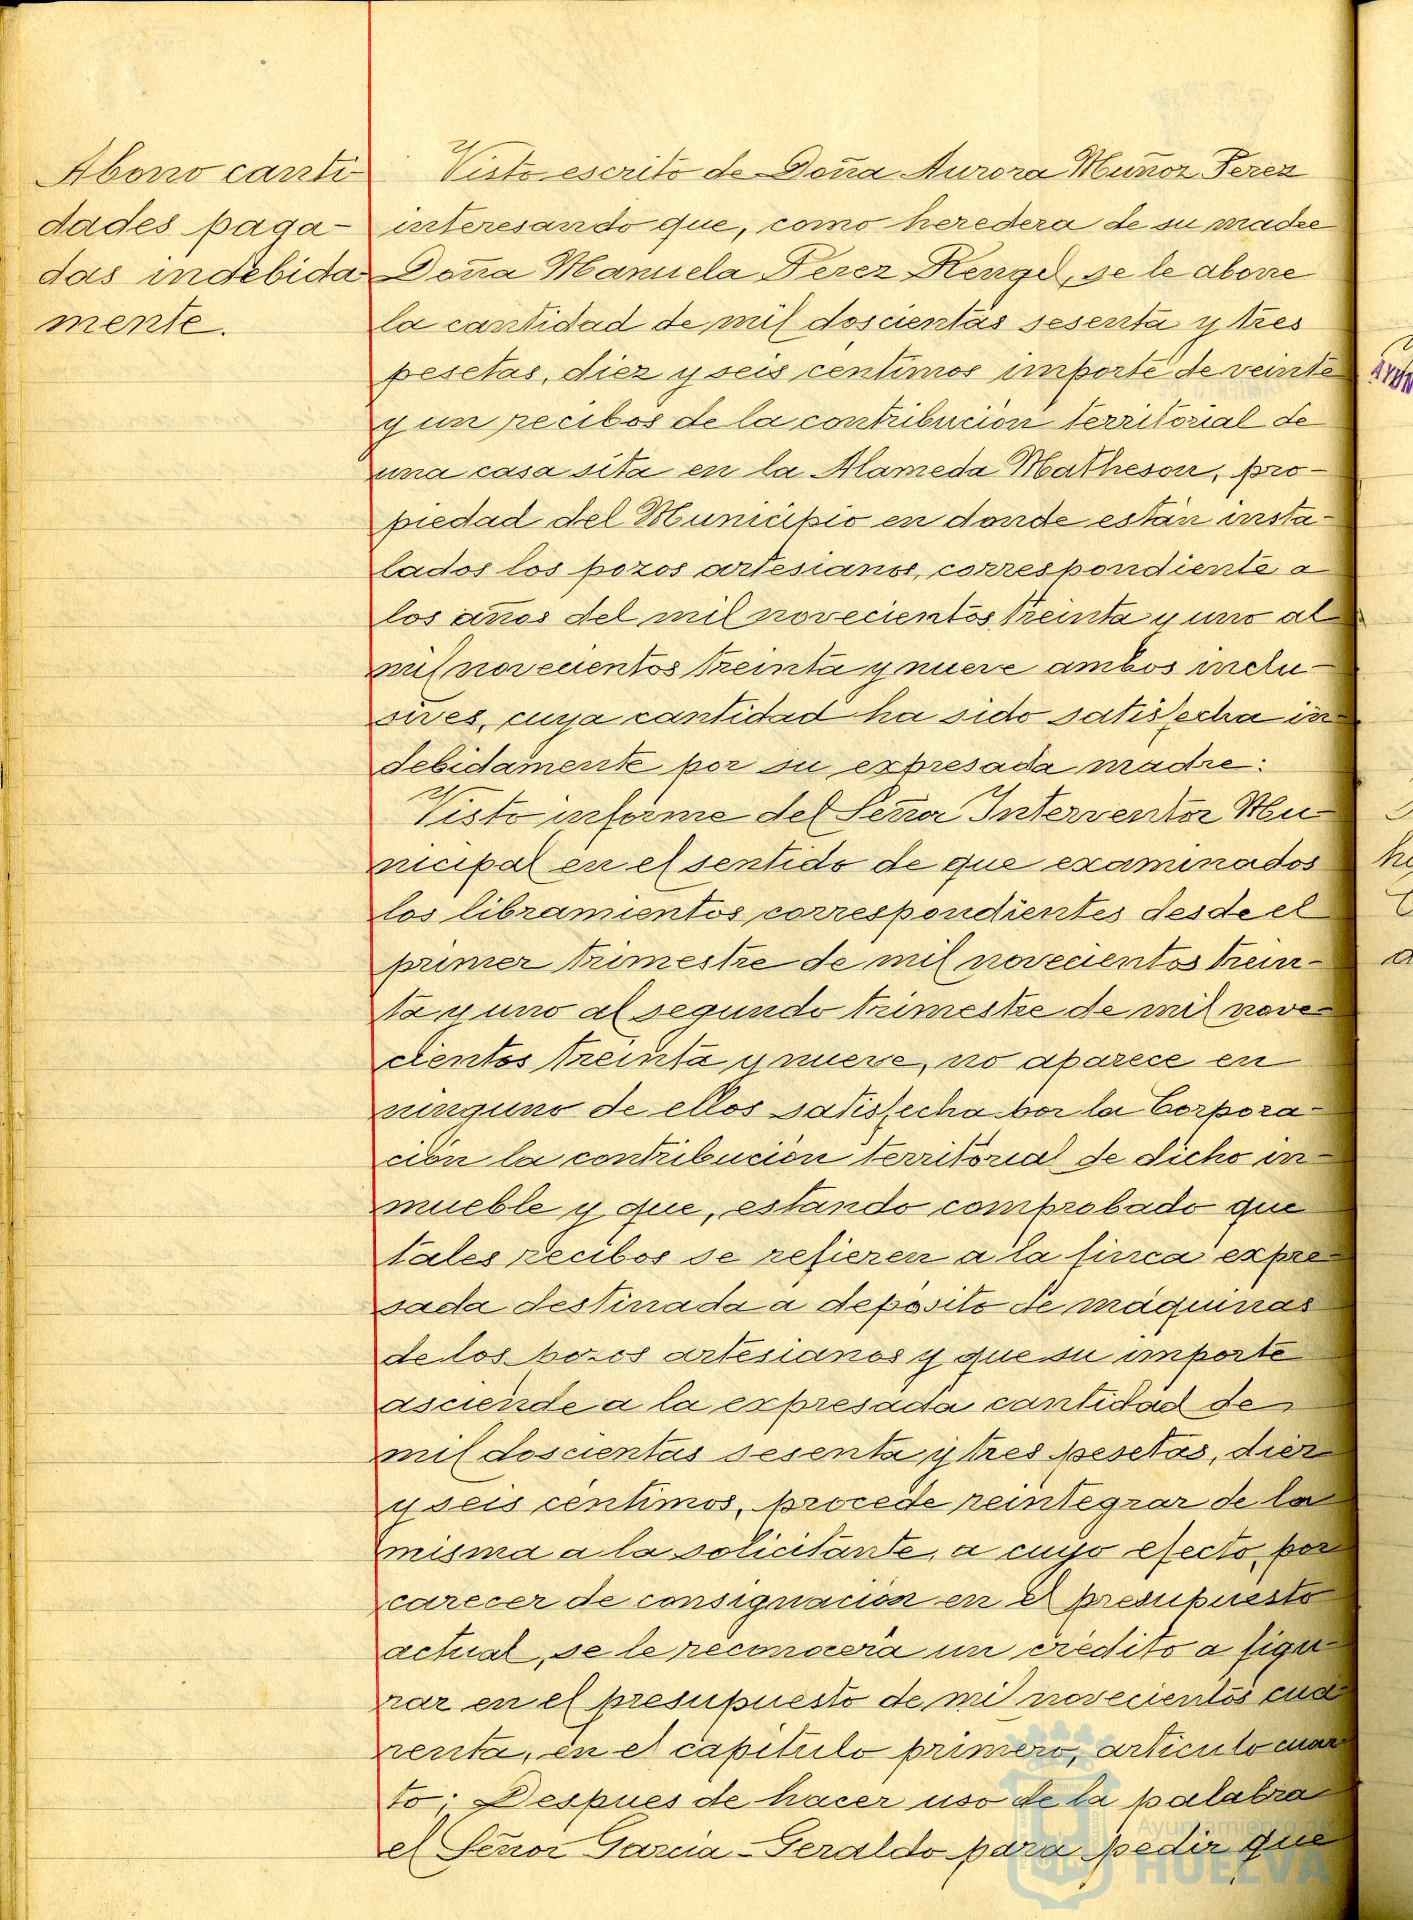 Abono canti-
dades paga-
das indebida-
mente.
Visto escrito de Doña Aurora Muñoz Perez
interesando que, como heredera de su madre
Doña Manuela Perez Rengel, se le abone
la cantidad de mil doscientas sesenta y tres
pesetas, diez y seis centimos importe de veinte
y un recibos de la contribución territorial de
una casa sita en la Alameda Matheson, pro-
piedad del Municipio en donde están insta-
lados los pozos artesianos, correspondiente a
los años del mil novecientos treinta y uno al
mil novecientos treinta y nueve ambos inclu-
sives, cuya cantidad ha sido satisfecha in-
debidamente por su expresada madre:
Visto informe del Señor Interventor Mu-
nicipal en el sentido de que examinados
los libramientos correspondientes desde el
primer trimestre de mil novecientos trein-
ta y uno al segundo trimestre de mil nove-
cientos treinta y nueve, no aparece en
ninguno de ellos satisfecha por la Corpora-
ción la contribución territorial de dicho in-
mueble y que, estando comprobado que
tales recibos se refieren a la finca expre-
sada destinada a depósito de máquinas
de los pozos artesianos y que su importe
asciende a la expresada cantidad de
mil doscientas sesenta y tres pesetas, diez
y seis céntimos, procede reintegrar de la
misma a la solicitante, a cuyo efecto, por
carecer de consignación en el presupuesto
actual, se le reconocerá un crédito a figu-
rar en el presupuesto de mil novecientos cua
renta, en el capítulo primero, articulo cuar-
to; Despues de hacer uso de la palabra
el Señor Garcia-Geraldo para pedir que
AYUN
Ayuntamiento de
HUELVA